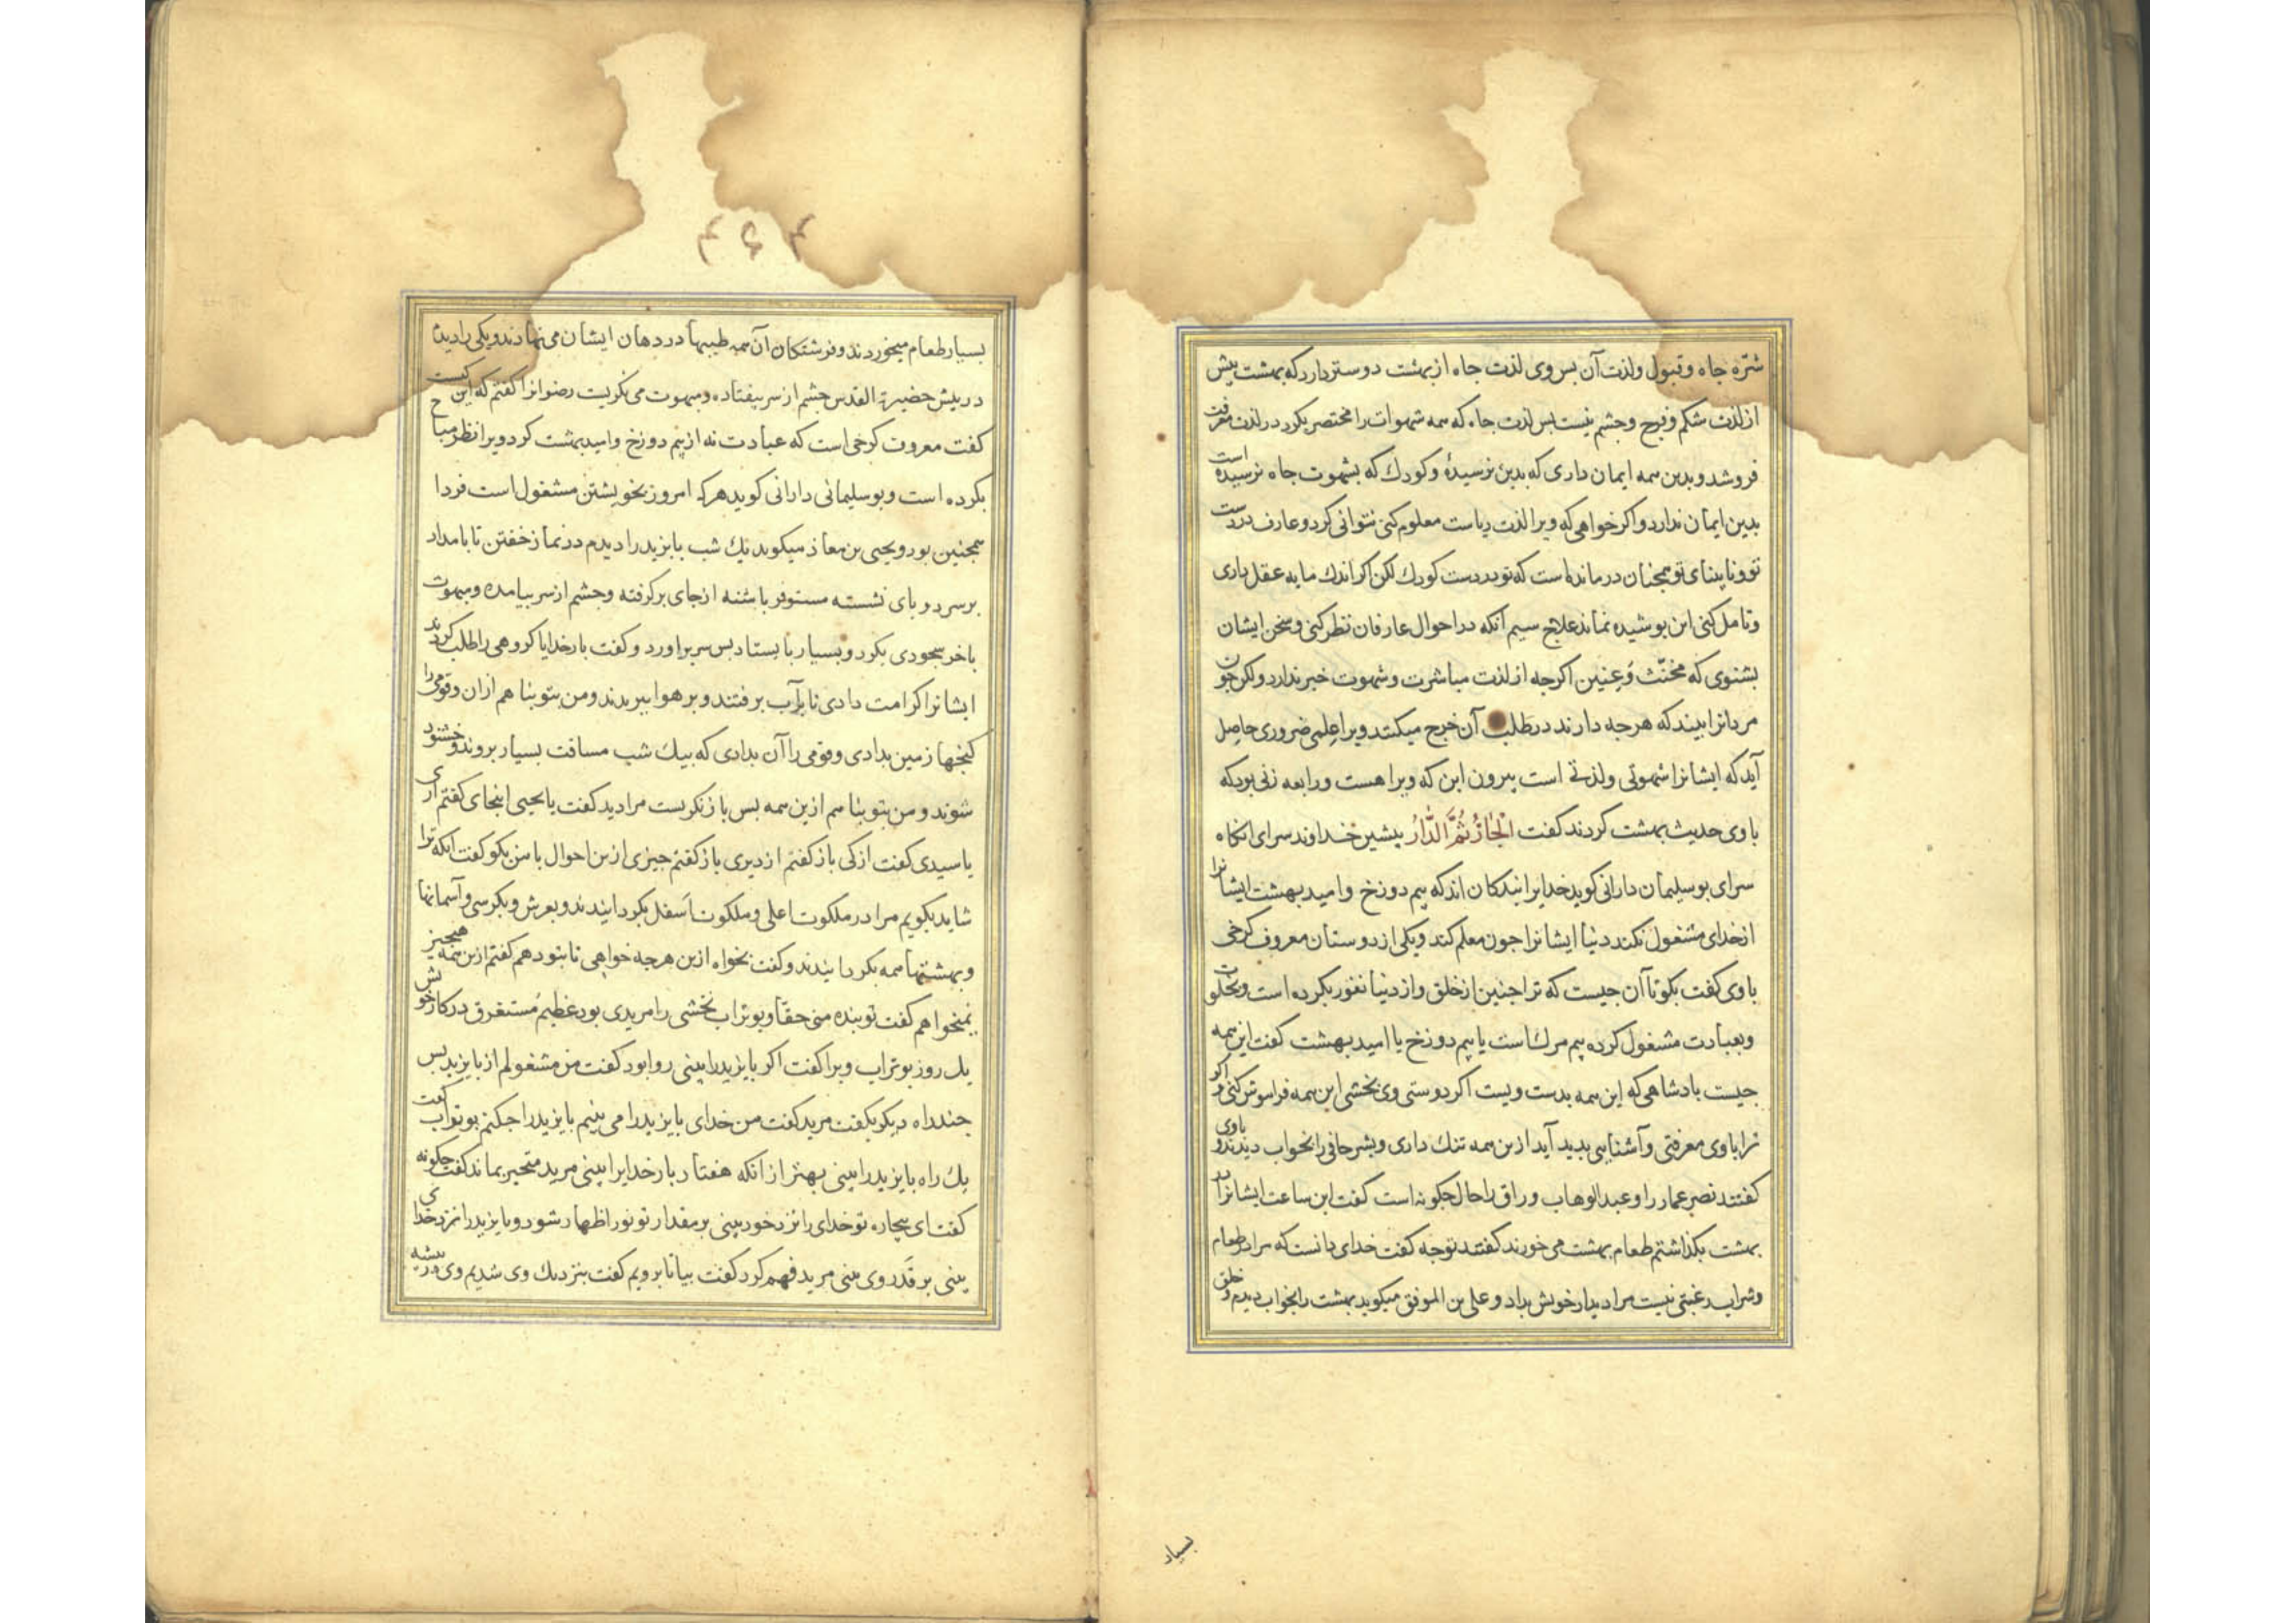 شرّه جاه و قبول ولذت آن بس وی لذت جاه از بهشت دوستر دارد که بهشت بیش
ازلذت شکم وفرج وجشم نیست بس لذت جاه که همه شهوات را مختصر بکرد درلذت معرفت
فروشد وبدین همه ایمان داری که بدین نرسیدهٔ وکودك که بشهوت جاه نرسیده است
بدین ایمان ندارد واکر خواهی که ویرا لذت ریاست معلوم کنی نتوانی کرد وعارف در دست
تو ونابینای تو همجنان درمانده است که تو در دست کودك لکن اکر اندك مایه عقل داری
وتامل کنی این بوشیده نماند علاج سیم آنکه در احوال عارفان نظر کنی وسخن ایشان
بشنوی که مخنّث وعنین اکرجه از لذت مباشرت وشهوت خبر ندارد ولکن جون
مردانرا بیند که هرجه دارند در طلب آن خرج میکنند ویرا علمی ضروری حاصل
آید که ایشانرا شهوتی ولذتی است بیرون این که ویرا هست ورابعه زنی بود که
باوی حدیث بهشت کردند کفت الْجَارُ ثُمَّ الدَّارُ بیشین خداوند سرای انکاه
سرای بوسلیمان دارانی کوید خدایرا بندکان اند که بیم دوزخ وامید بهشت ایشانرا
ازخدای مشغول نکند دنیا ایشانرا جون معلم کند ویکی از دوستان معروف کرخی
باوی کفت بکو تا آن جیست که ترا جنین از خلق واز دنیا نفور بکرده است وبخلوت
وبعبادت مشغول کرده بیم مرك است یا بیم دوزخ یا امید بهشت کفت این همه
جیست بادشاهی که این همه بدست ویست اکر دوستی وی بخشی این همه فراموش کنی واکر
ترا باوی معرفتی وآشنایی بدید آید ازین همه ننك داری وبشر حافی را بخواب دیدند وباوی
کفتند نصر عمار را وعبد الوهاب وراق را حال جکونه است کفت این ساعت ایشانرا در
بهشت بکذاشتم طعام بهشت می خورند کفتند توجه کفت خدای دانست که مرا در طعام
وشراب رغبتی نیست مرا دیدار خویش بداد وعلی بن الموفق میکوید بهشت را بخواب دیدم وخلق
بسیار
۴۶۴
بسیار طعام میخوردند وفرشتکان آن همه طیبها در دهان ایشان می نهادند ویکی را دیدم
در بیش حضیرة القدس جشم از سر بیفتاده ومبهوت می نکریست رضوانرا کفتم که این کیست
کفت معروف کرخی است که عبادت نه از بیم دوزخ وامید بهشت کرد ویرا نظر مباح
بکرده است وبوسلیمانی دارانی کوید هرکه امروز بخویشتن مشغول است فردا
همجنین بود ویحیی بن معاذ میکوید یك شب بایزید را دیدم در نماز خفتن تا بامداد
برسر دو بای نشسته مستوفر باشنه از جای برکرفته وجشم از سر بیامده ومبهوت
باخر سجودی بکرد وبسیار بایستاد بس سر براورد وکفت بار خدایا کروهی را طلب کردند
ایشانرا کرامت دادی تا برآب برفتند وبرهوا ببریدند ومن بتو بناهم ازان وقومی را
کنجها زمین بدادی وقومی را آن بدادی که بیك شب مسافت بسیار بروند وخشنود
شوند ومن بتو بناهم ازین همه بس باز نکریست مرا دید کفت یا یحیی اینجای کفتم اری
یا سیدی کفت از کی باز کفتم از دیری باز کفتم جیزی ازین احوال با من بکو کفت انکه ترا
شاید بکویم مرا در ملکوت اعلی وملکوت اَسفل بکردانیدند وبعرش وبکرسی وآسمانها
وبهشتها همه بکردانیدند وکفت بخواه ازین هرجه خواهی تا بتو دهم کفتم ازین همه هیجیز
نمیخواهم کفت تو بندهٔ منی حقا وبوتراب نخشبی را مریدی بود عظیم مستغرق درکار خویش
یك روز بوتراب ویرا کفت اکر بایزید را بینی روا بود کفت من مشغولم از بایزید بس
جند راه دیکر بکفت مرید کفت من خدای بایزید را می بینم بایزید را جکنم بوتراب کفت
یك راه بایزید را بینی بهتر از انکه هفتاد بار خدایرا بینی مرید متحیر بماند کفت جکونه
کفت ای بیجاره تو خدای را نزد خود بینی بر مقدار تو نورا ظهار شود وبایزید را نزد خدای
بینی بر قَدَر وی بینی مرید فهم کرد کفت بیا تا برویم کفت بنزدیك وی شدیم وی در بیشه